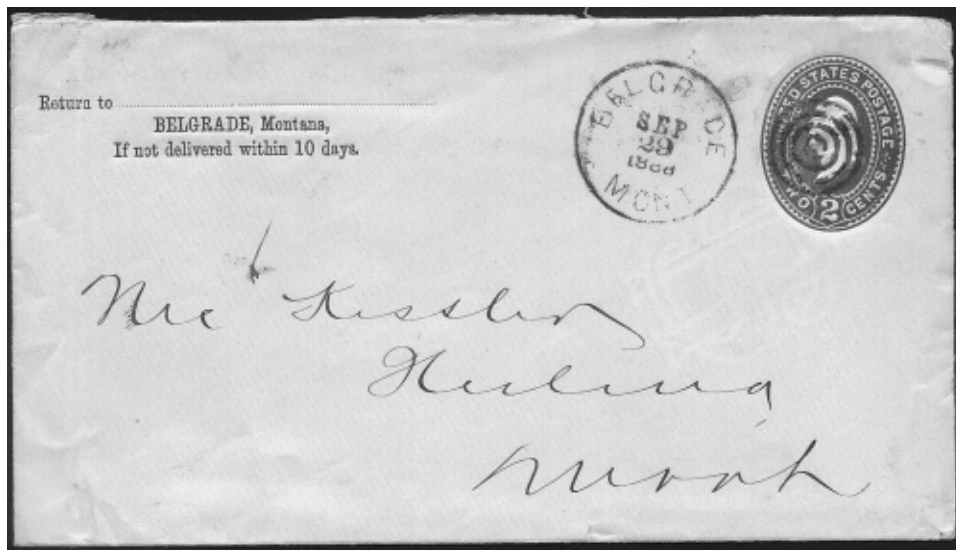 Return to
BELGRADE, Montana,
If not delivered within 10 days.
BELGRADE
SEP
29
1888
MONT
UNITED STATES POSTAGE
TWO 2 CENTS
Kessler
Helena
Mont